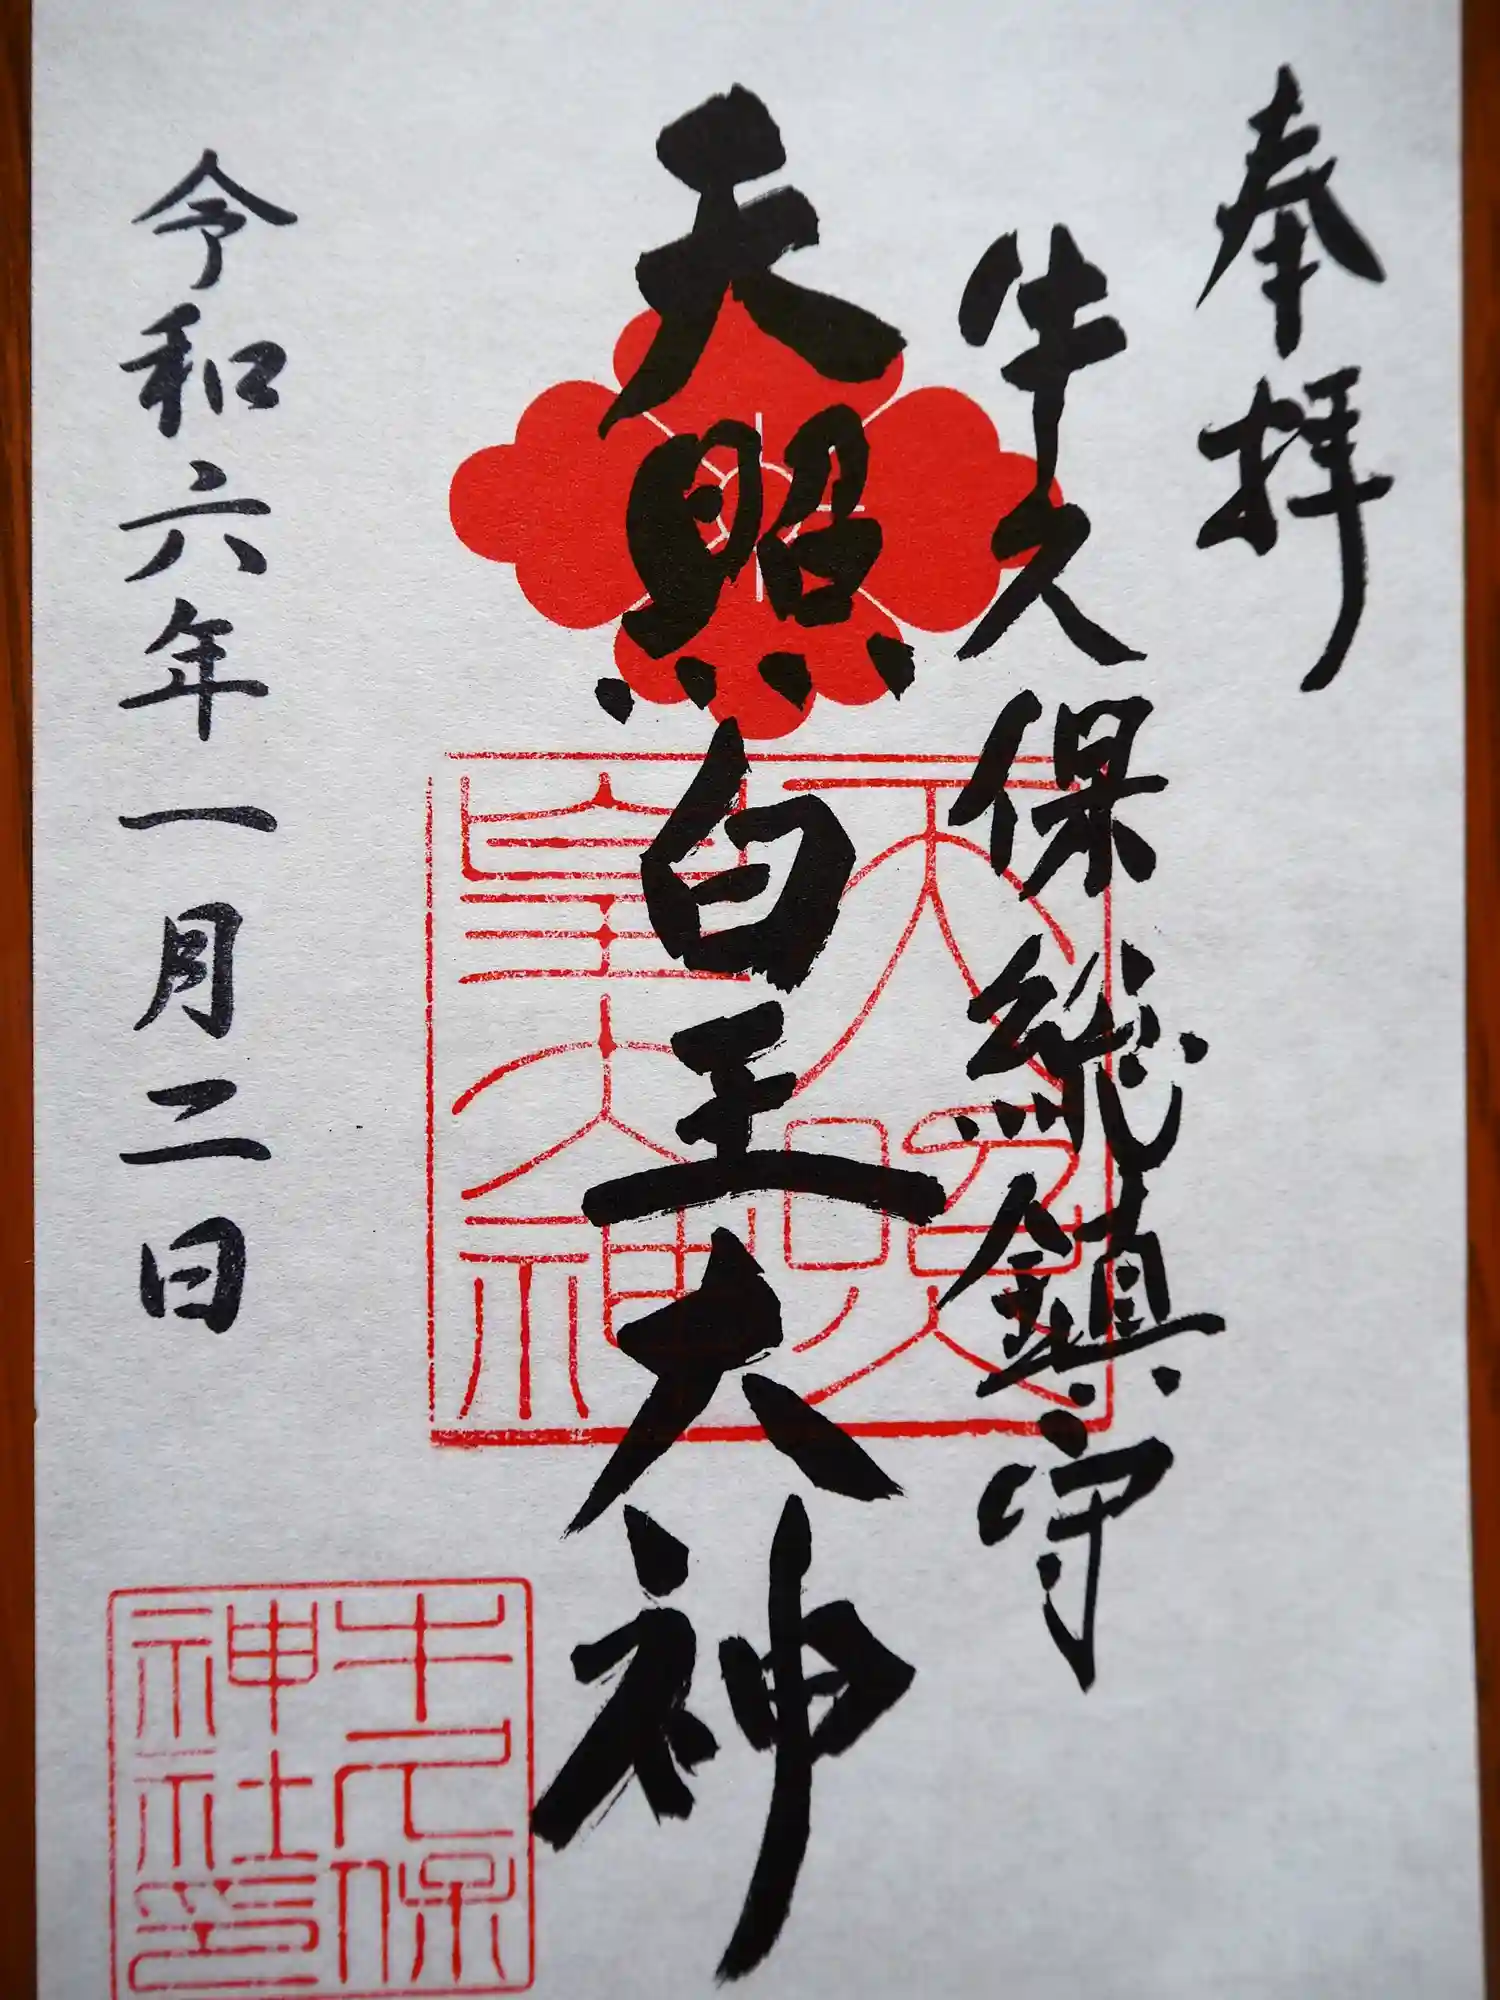 奉拝
牛久保総鎮守
天照皇大神
令和六年一月二日
天照
皇大神
牛久保
神社印